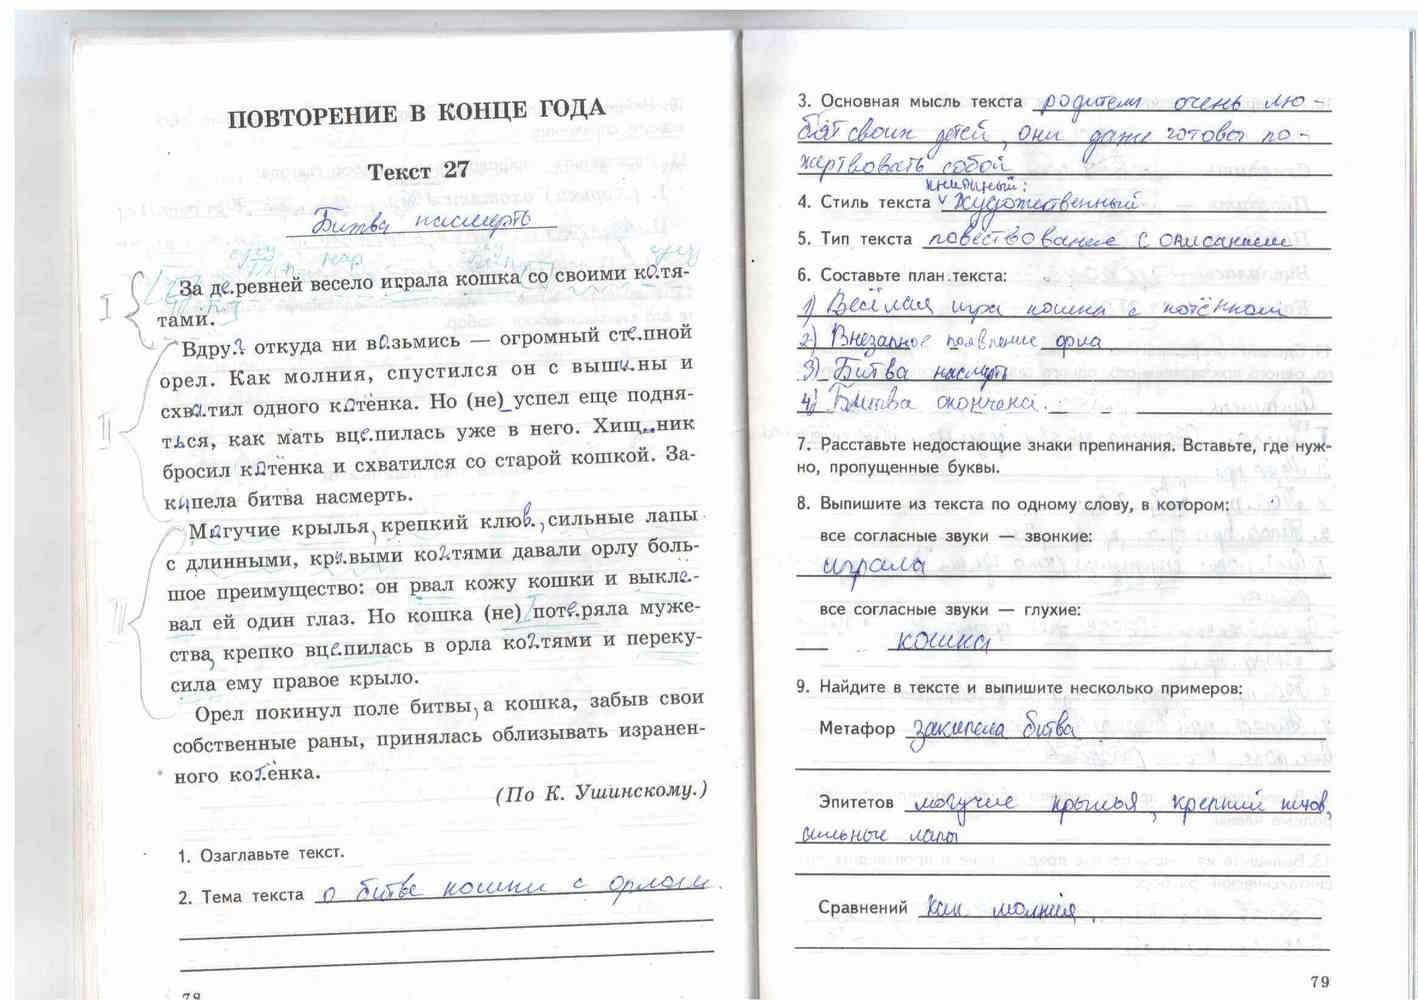 ПОВТОРЕНИЕ В КОНЦЕ ГОДА
Текст 27
Битва насмерть
I
За де.ревней весело играла кошка со своими котя-
тами.
II
Вдруг откуда ни возьмись — огромный сте.пной
орел. Как молния, спустился он с вышины и
схва.тил одного котёнка. Но (не) успел еще подня-
ться, как мать вце.пилась уже в него. Хищ..ник
бросил котёнка и схватился со старой кошкой. За-
кипела битва насмерть.
III
Могучие крылья, крепкий клюв., сильные лапы
с длинными, кри.выми когтями давали орлу боль-
шое преимущество: он рвал кожу кошки и выкле.-
вал ей один глаз. Но кошка (не) поте.ряла муже-
ства, крепко вце.пилась в орла когтями и переку-
сила ему правое крыло.
Орел покинул поле битвы, а кошка, забыв свои
собственные раны, принялась облизывать изранен-
ного котёнка.
(По К. Ушинскому.)
1. Озаглавьте текст.
2. Тема текста о битве кошки с орлом.
78
3. Основная мысль текста родители очень лю-
бят своих детей, они даже готовы по-
жертвовать собой
книжный:
4. Стиль текста художественный
5. Тип текста повествование с описанием
6. Составьте план текста:
1) Весёлая игра кошки с котёнком
2) Внезапное появление орла
3) Битва насмерть
4) Битва окончена.
7. Расставьте недостающие знаки препинания. Вставьте, где нуж-
но, пропущенные буквы.
8. Выпишите из текста по одному слову, в котором:
все согласные звуки — звонкие:
играла
все согласные звуки — глухие:
кошка
9. Найдите в тексте и выпишите несколько примеров:
Метафор закипела битва
Эпитетов могучие крылья, крепкий клюв,
сильные лапы
Сравнений Как молния.
79